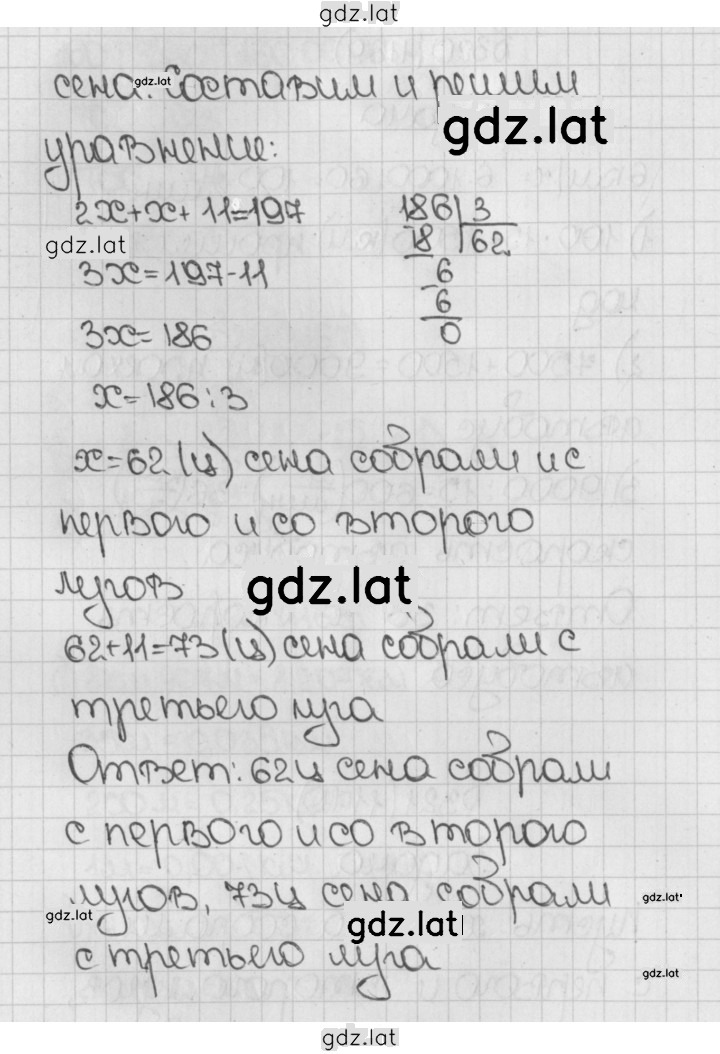 gdz.lat
сена. Составим и решим
gdz.lat
gdz.lat
уравнение:
2x+x+11=197
gdz.lat
3x=197-11
3x=186
x=186:3
186 3
18 62
6
6
0
x=62 (ц) сена собрали и с
первого и со второго
лугов
gdz.lat
62+11=73 (ц) сена собрали с
третьего луга
Ответ: 62ц сена собрали
с первого и со второго
лугов, 73ц сена собрали
gdz.lat
gdz.lat
gdz.lat
с третьего луга
gdz.lat
gdz.lat